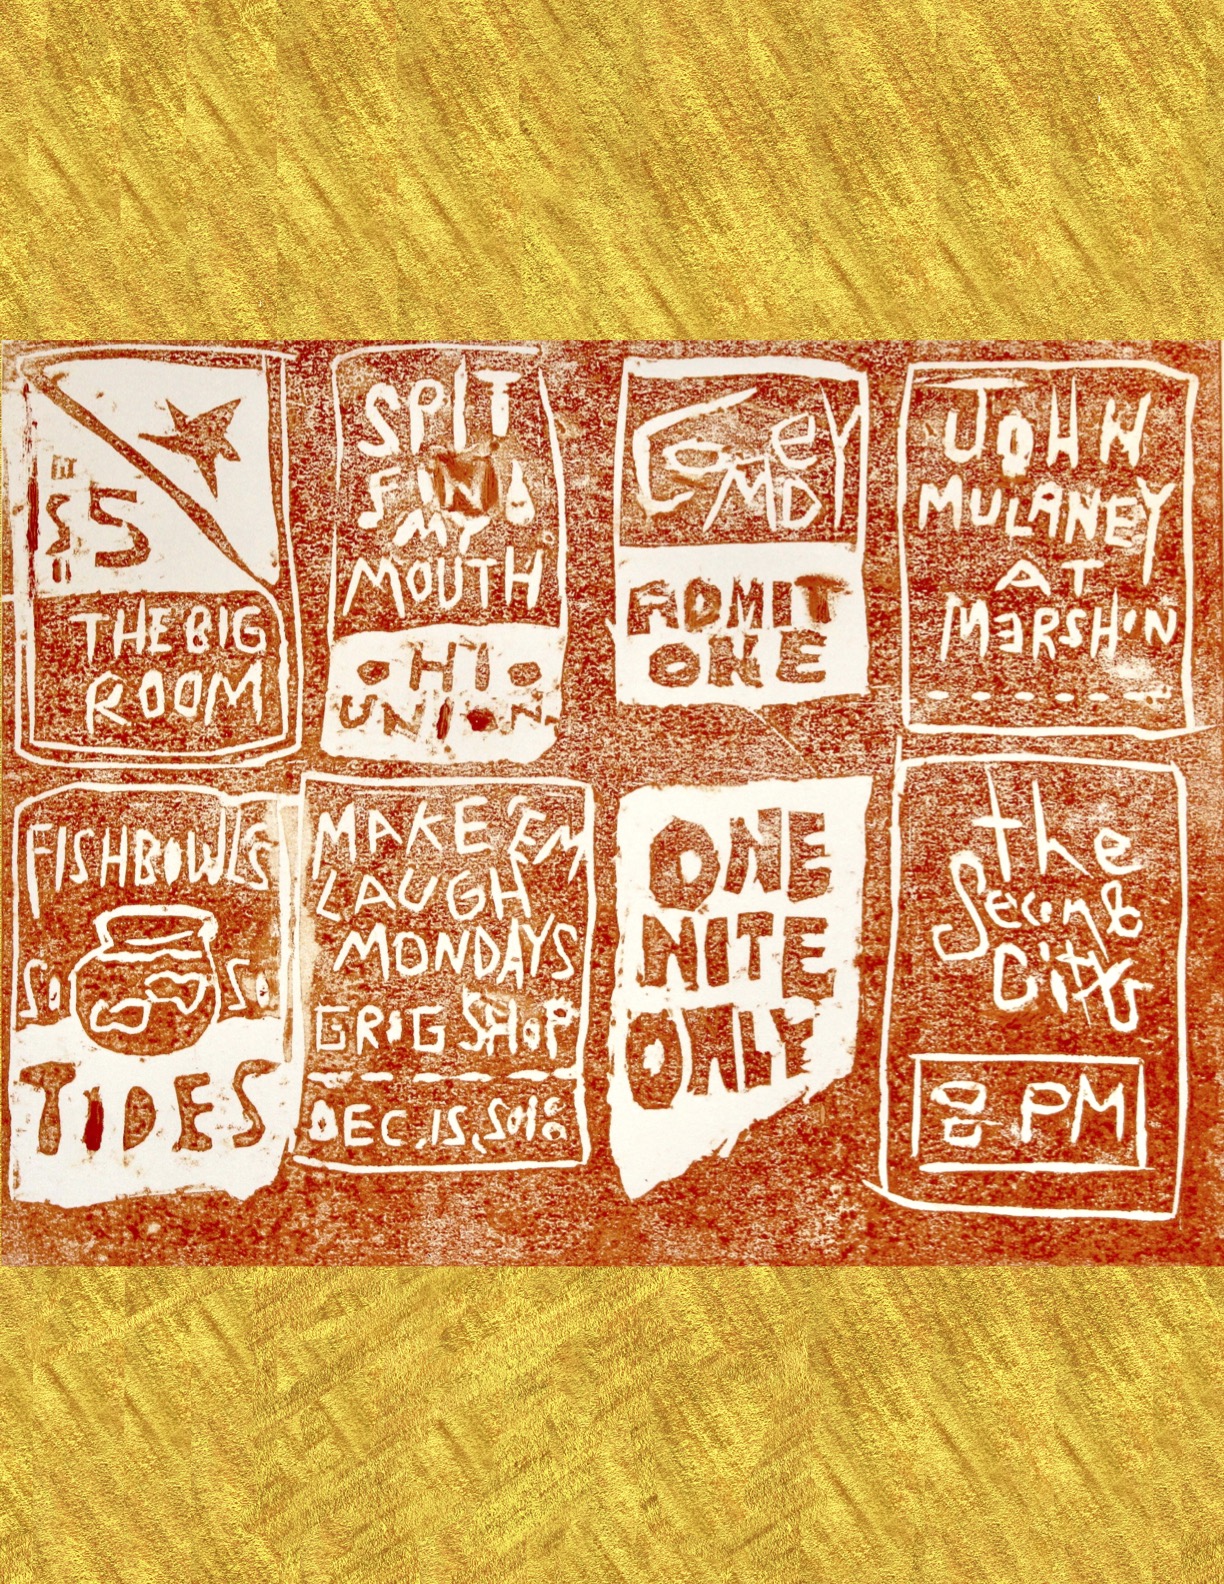 $5
THE BIG
ROOM
SPIT
IN
MY
MOUTH
OHIO
UNION
COMEDY
ADMIT
ONE
JOHN
MULANEY
AT
MERSHON
FISHBOWLS
TIDES
MAKE 'EM
LAUGH
MONDAYS
GROG SHOP
DEC. 15, 2018
ONE
NITE
ONLY
the
Second
City
8 PM